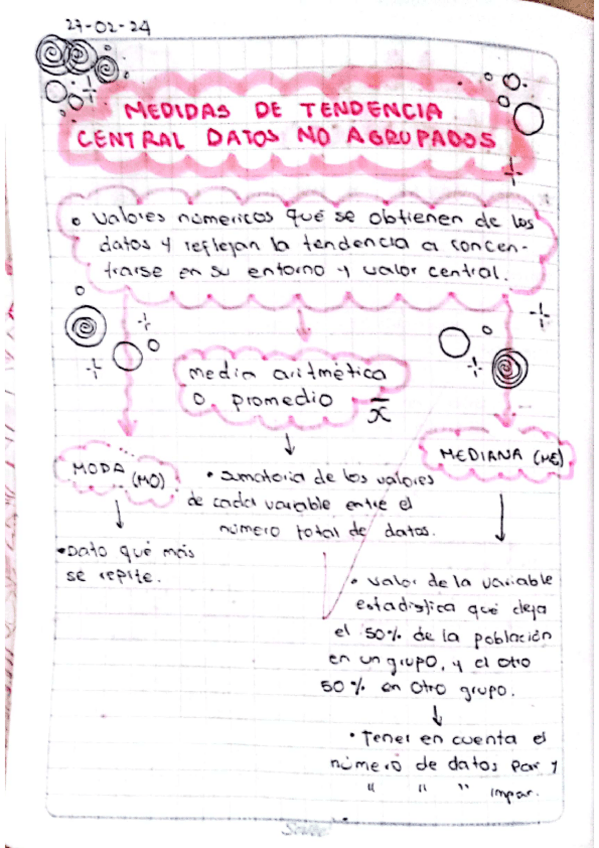 27-02-24
MEDIDAS DE TENDENCIA
CENTRAL DATOS NO AGRUPADOS
• Valores númericos qué se obtienen de los
datos y reflejan la tendencia a concen-
trarse en su entorno y valor central.
media aritmética
o promedio x̄
MODA (MO)
MEDIANA (ME)
• sumatoria de los valores
de cada variable entre el
número total de datos.
• Dato qué más
se repite.
• Valor de la variable
estadistica qué deja
el 50% de la población
en un grupo, y el otro
50% en otro grupo.
• Tener en cuenta el
número de datos par y
" " " impar.
Scribe